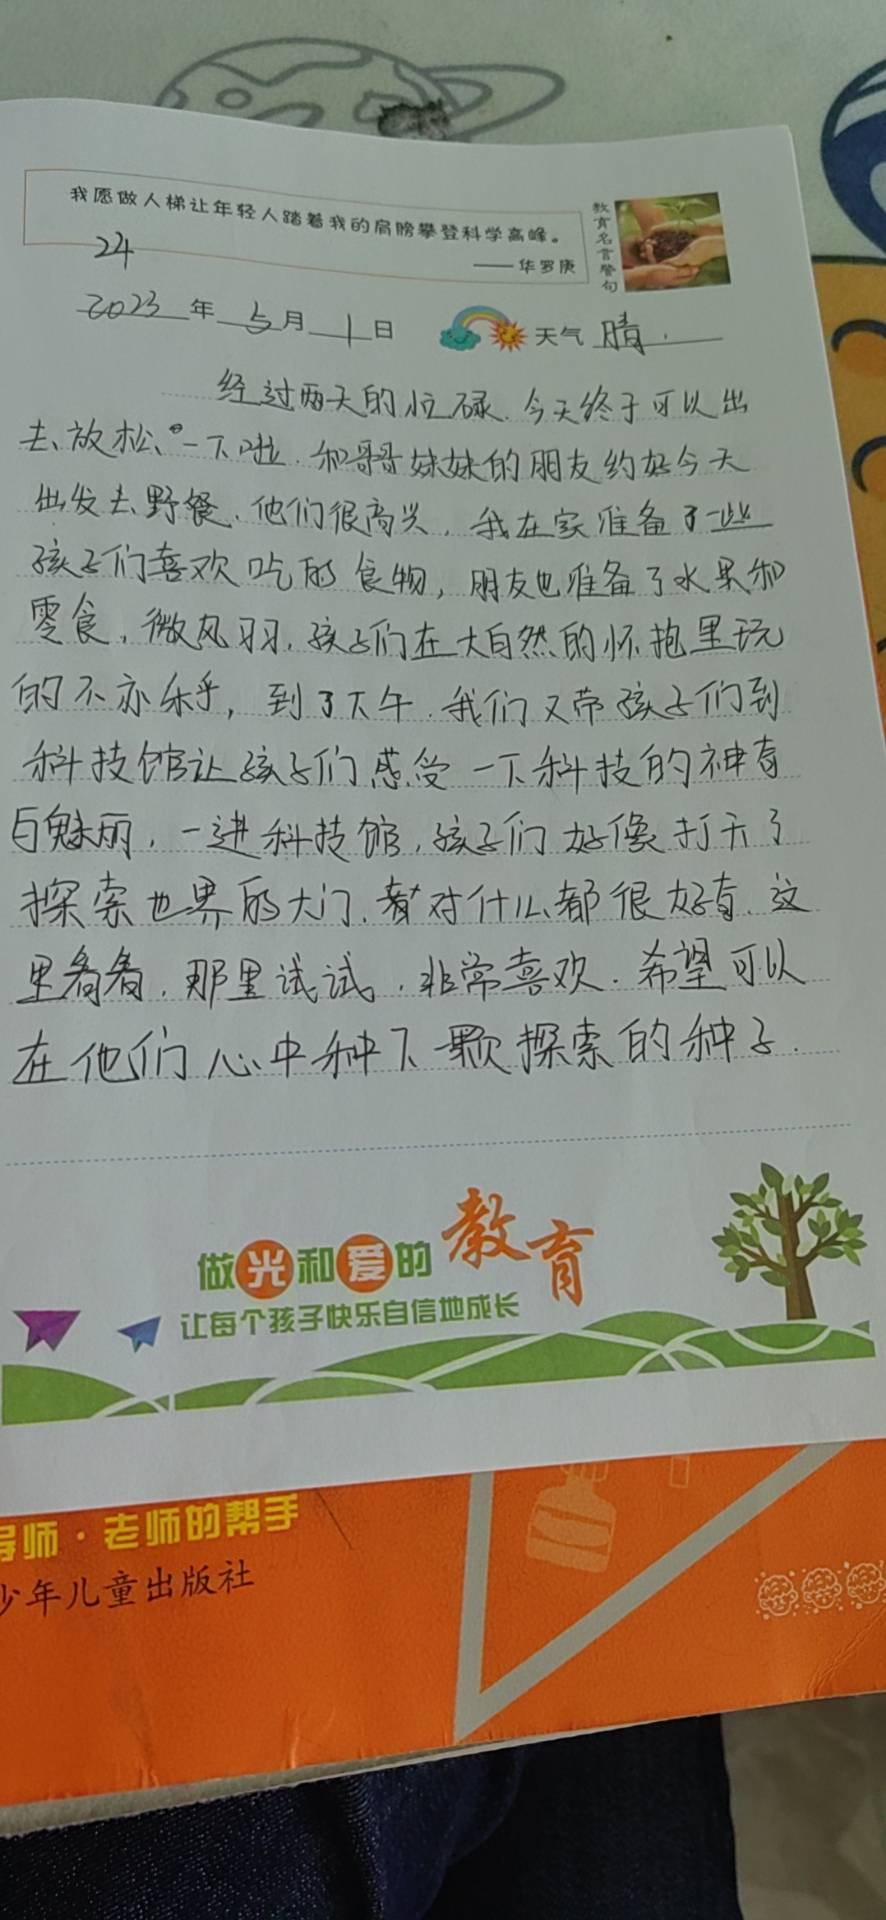 我愿做人梯让年轻人踏着我的肩膀攀登科学高峰。
——华罗庚
教育名言警句
24
2023年5月1日 天气 晴.
经过两天的忙碌.今天终于可以出
去放松一下啦.和哥哥妹妹的朋友约好今天
出发去野餐.他们很高兴,我在家准备了一些
孩子们喜欢吃的食物,朋友也准备了水果和
零食,微风习习,孩子们在大自然的怀抱里玩
的不亦乐乎,到了下午.我们又带孩子们到
科技馆让孩子们感受一下科技的神奇
与魅丽,一进科技馆,孩子们好像打开了
探索世界的大门.对什么都很好奇.这
里看看,那里试试,非常喜欢.希望可以
在他们心中种下一颗探索的种子.
做光和爱的教育
让每个孩子快乐自信地成长
导师·老师的帮手
少年儿童出版社